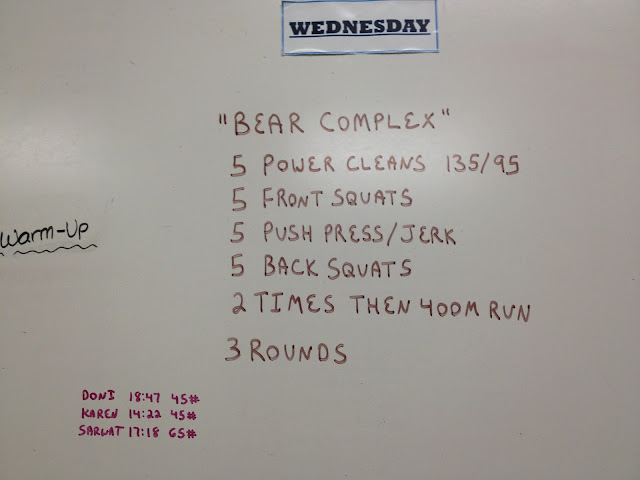 WEDNESDAY
"BEAR COMPLEX"
5 POWER CLEANS 135/95
5 FRONT SQUATS
Warm-Up
5 PUSH PRESS/JERK
5 BACK SQUATS
2 TIMES THEN 400M RUN
3 ROUNDS
DONI 18:47 45#
KAREN 14:22 45#
SARWAT 17:18 65#